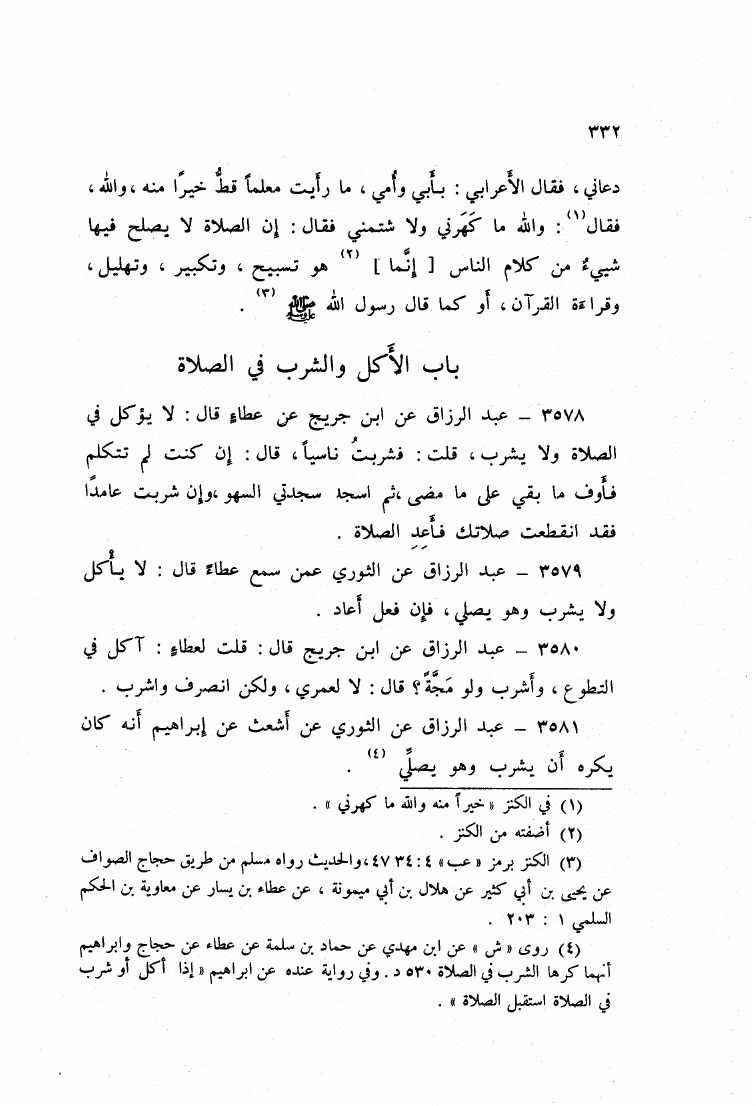 ٣٣٢
دعاني، فقال الأعرابي : بأبي وأمي، ما رأيت معلماً قطُّ خيرًا منه، والله،
فقال(١) : والله ما كَهَرني ولا شتمني فقال : إن الصلاة لا يصلح فيها
شييءٌ من كلام الناس [ إنَّما ](٢) هو تسبيح، وتكبير، وتهليل،
وقراءة القرآن، أو كما قال رسول الله ﷺ (٣) .
باب الأكل والشرب في الصلاة
٣٥٧٨ – عبد الرزاق عن ابن جريج عن عطاءٍ قال : لا يؤكل في
الصلاة ولا يشرب، قلت : فشربتُ ناسياً، قال : إن كنت لم تتكلم
فأوف ما بقي على ما مضى، ثم اسجد سجدتي السهو، وإن شربت عامدًا
فقد انقطعت صلاتك فأَعِدِ الصلاة .
٣٥٧٩ – عبد الرزاق عن الثوري عمن سمع عطاءً قال : لا يأْكل
ولا يشرب وهو يصلي، فإن فعل أعاد .
٣٥٨٠ – عبد الرزاق عن ابن جريج قال : قلت لعطاءٍ : آكل في
التطوع، وأشرب ولو مَجَّةً؟ قال : لا لعمري، ولكن انصرف واشرب .
٣٥٨١ – عبد الرزاق عن الثوري عن أشعث عن إبراهيم أنه كان
يكره أن يشرب وهو يصلِّي (٤) .
(١) في الكنز « خيراً منه والله ما كهرني » .
(٢) أضفته من الكنز .
(٣) الكنز برمز « عب » ٤ : ٤٧٣٤، والحديث رواه مسلم من طريق حجاج الصواف
عن يحيى بن أبي كثير عن هلال بن أبي ميمونة، عن عطاء بن يسار عن معاوية بن الحكم
السلمي ١ : ٢٠٣ .
(٤) روى « ش » عن ابن مهدي عن حماد بن سلمة عن عطاء عن حجاج وابراهيم
أنهما كرها الشرب في الصلاة ٥٣٠ د . وفي رواية عنده عن ابراهيم « إذا أكل أو شرب
في الصلاة استقبل الصلاة » .